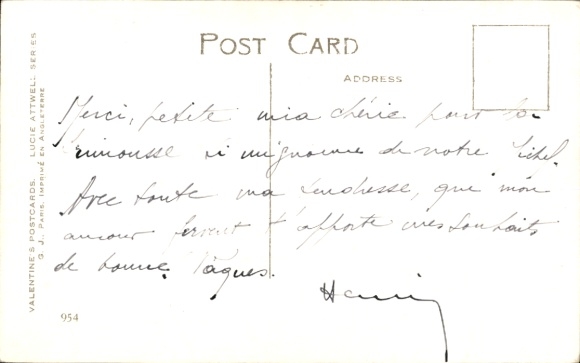 POST CARD
ADDRESS
Merci, petite mia chérie pour ta
frimousse si mignonne de notre
Avec toute ma tendresse, que mon
amour fervent t'apporte mes souhaits
de bonne Pâques.
VALENTINE'S POSTCARDS. LUCIE ATTWELL SERIES.
G. J., PARIS. IMPRIMÉ EN ANGLETERRE
954